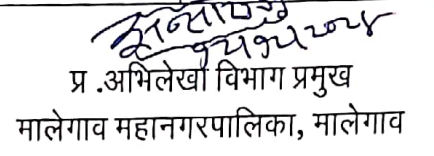 प्र .अभिलेखा विभाग प्रमुख
मालेगाव महानगरपालिका, मालेगाव